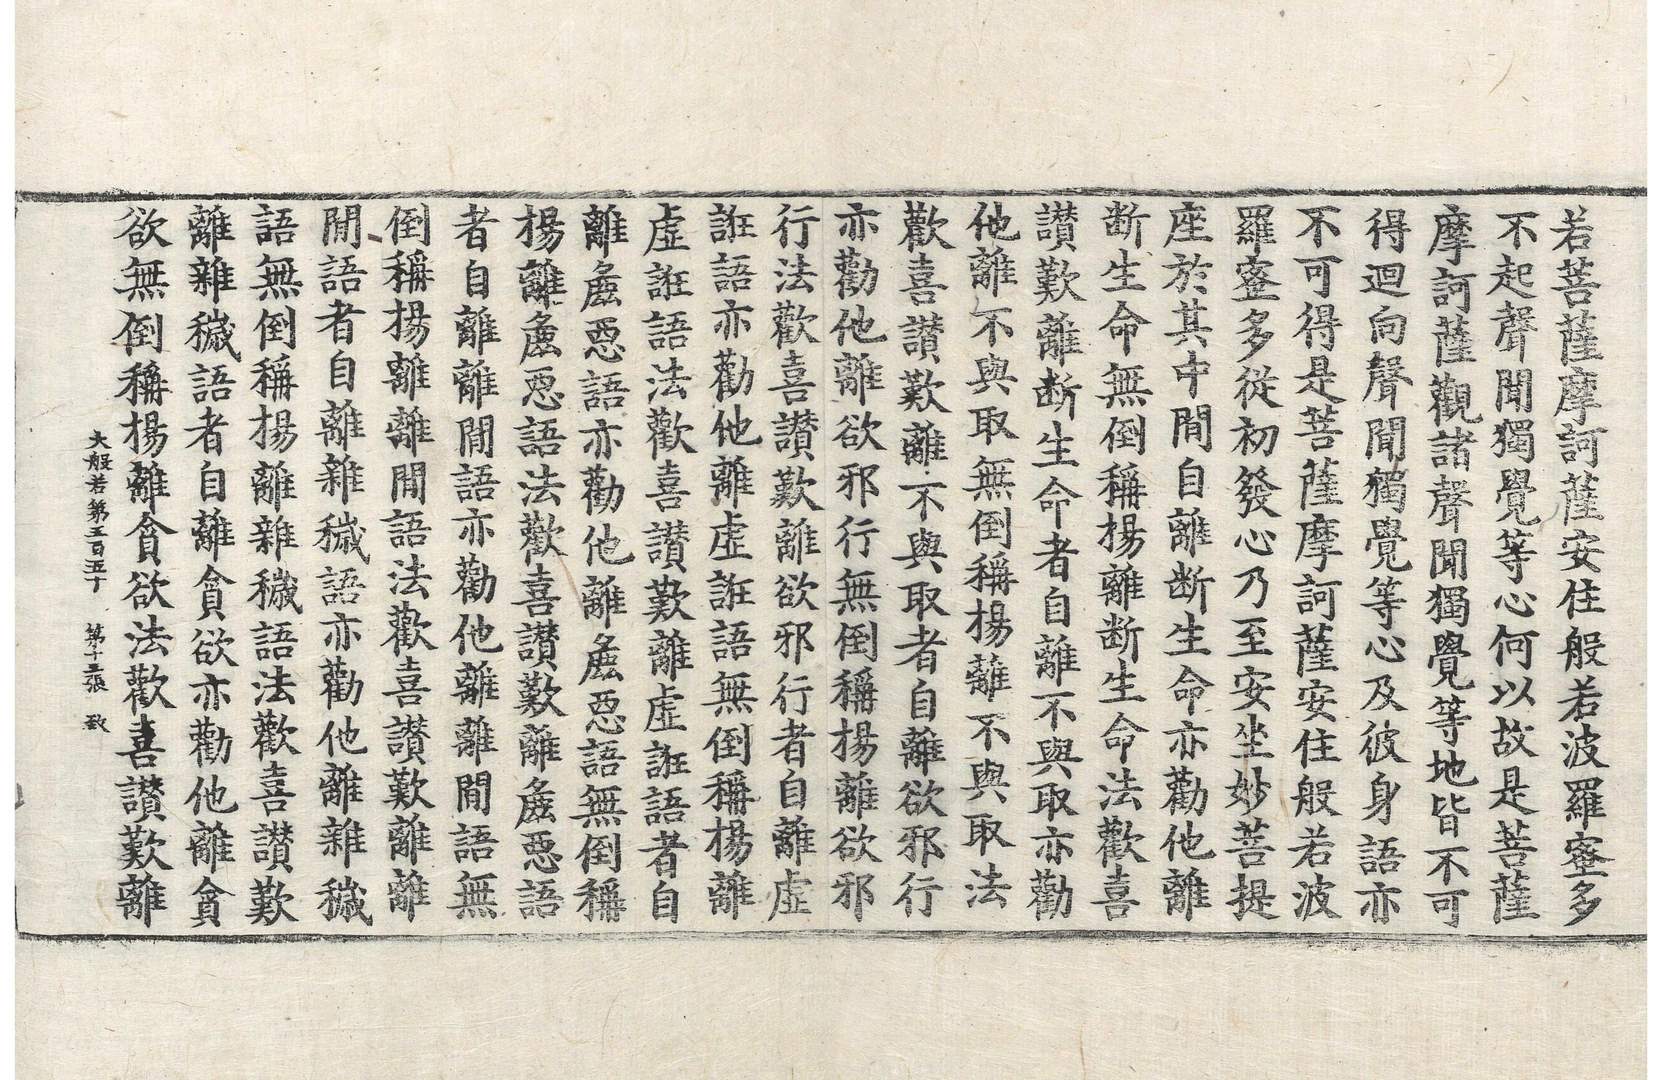 若菩薩摩訶薩安住般若波羅蜜多
不起聲聞獨覺等心何以故是菩薩
摩訶薩觀諸聲聞獨覺等地皆不可
得迴向聲聞獨覺等心及彼身語亦
不可得是菩薩摩訶薩安住般若波
羅蜜多從初發心乃至安坐妙菩提
座於其中閒自離断生命亦勸他離
断生命無倒稱揚離断生命法歡喜
讃歎離断生命者自離不與取亦勸
他離不與取無倒稱揚離不與取法
歡喜讃歎離不與取者自離欲邪行
亦勸他離欲邪行無倒稱揚離欲邪
行法歡喜讃歎離欲邪行者自離虛
誑語亦勸他離虛誑語無倒稱揚離
虛誑語法歡喜讃歎離虛誑語者自
離麁惡語亦勸他離麁惡語無倒稱
揚離麁惡語法歡喜讃歎離麁惡語
者自離離閒語亦勸他離離閒語無
倒稱揚離離閒語法歡喜讃歎離離
閒語者自離雜穢語亦勸他離雜穢
語無倒稱揚離雜穢語法歡喜讃歎
離雜穢語者自離貪欲亦勸他離貪
大般若第五百五十 第十三張 致
欲無倒稱揚離貪欲法歡喜讃歎離